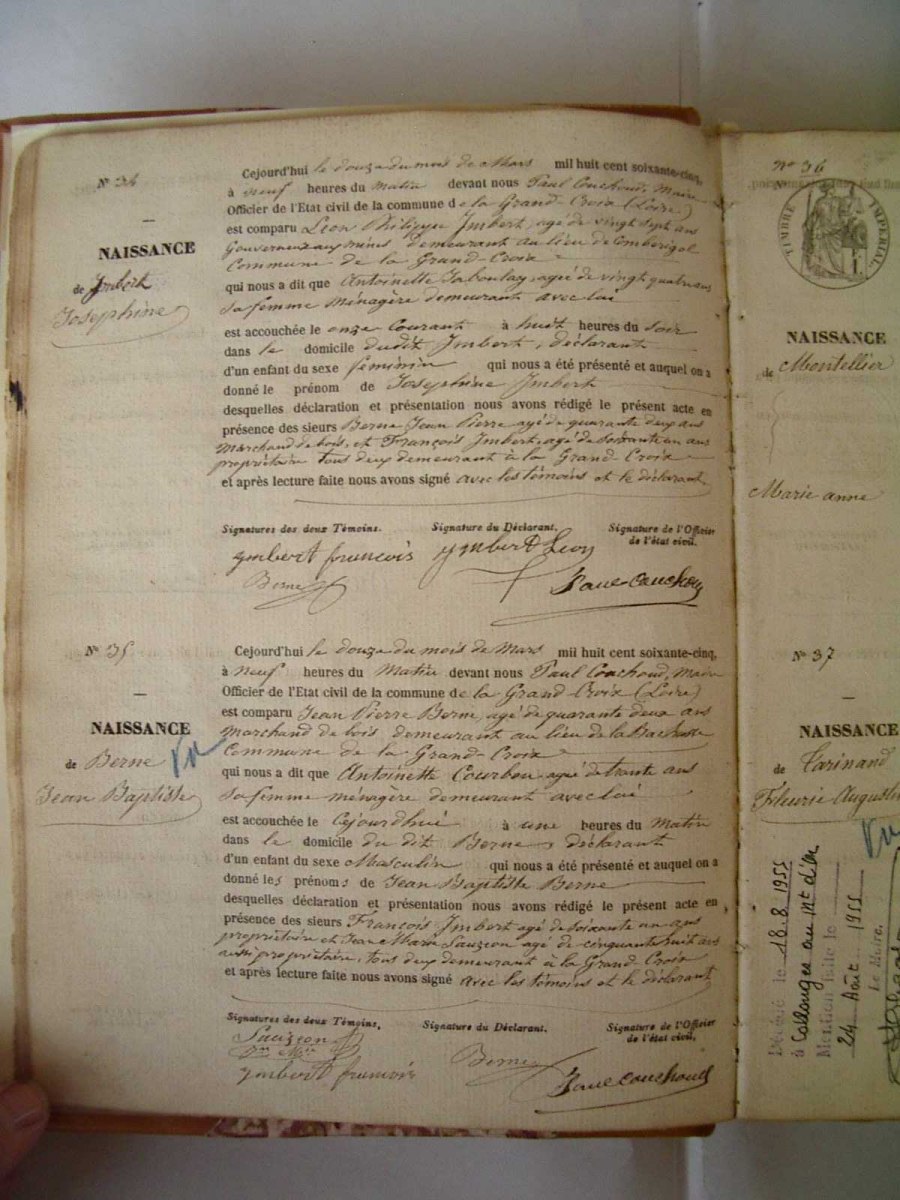 N° 34
NAISSANCE
de Imbert
Josephine
Cejourd'hui le douze du mois de Mars mil huit cent soixante-cinq,
à neuf heures du Matin devant nous Paul Couchoud, Maire
Officier de l'Etat civil de la commune de la Grand-Croix (Loire)
est comparu Léon Philippe Imbert, agé de vingt sept ans
Gouverneur aux mines demeurant au lieu de
Commune de la Grand-Croix
qui nous a dit que Antoinette Jaboulay, agée de vingt quatre ans
sa femme ménagère demeurant avec lui
est accouchée le onze Courant à huit heures du soir
dans le domicile dudit Imbert, déclarant
d'un enfant du sexe féminin qui nous a été présenté et auquel on a
donné le prénom de Josephine Imbert
desquelles déclaration et présentation nous avons rédigé le présent acte en
présence des sieurs Berne Jean Pierre agé de quarante deux ans
marchand de bois, et François Imbert, agé de soixante un ans
propriétaire tous deux demeurant à la Grand Croix
et après lecture faite nous avons signé avec les témoins et le déclarant
Signatures des deux Témoins. Signature du Déclarant. Signature de l'Officier
de l'état civil.
ymbert francois ymbert Leon
Berne Paul Couchoud
N° 35
NAISSANCE
de Berne
Vu
Jean Baptiste
Cejourd'hui le douze du mois de Mars mil huit cent soixante-cinq,
à neuf heures du Matin devant nous Paul Couchoud, Maire
Officier de l'Etat civil de la commune de la Grand-Croix (Loire)
est comparu Jean Pierre Berne, agé de quarante deux ans
marchand de bois demeurant au lieu de la Bachasse
Commune de la Grand-Croix
qui nous a dit que Antoinette Courbon agée de trente ans
sa femme ménagère demeurant avec lui
est accouchée le Cejourdhui à une heures du matin
dans le domicile du dit Berne, déclarant
d'un enfant du sexe Masculin qui nous a été présenté et auquel on a
donné les prénoms de Jean Baptiste Berne
desquelles déclaration et présentation nous avons rédigé le présent acte en
présence des sieurs François Imbert agé de soixante un ans
propriétaire et Jean Marie Sauzion agé de cinquante huit ans
aussi propriétaire, tous deux demeurant à la Grand Croix
et après lecture faite nous avons signé avec les témoins et le déclarant
Signatures des deux Témoins, Signature du Déclarant. Signature de l'Officier
de l'état civil,
Sauzion
ymbert francois Berne Paul Couchoud
N° 36
TIMBRE IMPERIAL
NAISSANCE
de Montellier
Marie anne
N° 37
NAISSANCE
de Tarinand
Fleurie Augustine
Vu
Décédé le 18.8.1955
à Collonges au Mt d'Or
Mention faite le
24 Août 1955
Le Maire,